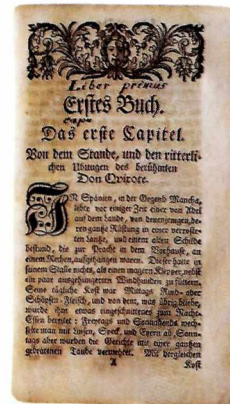 Liber primus
Erstes Buch.
Das erste Capitel.
Von dem Stande, und den ritterli-
chen Ubungen des berühmten
Don Qvixote.
IN Spanien, in der Gegend Mancha,
lebte vor einiger Zeit einer von Adel
auf dem Lande, von denenjenigen, de-
ren gantze Rüstung in einer verroste-
ten Lantze, und einem alten Schilde
bestund, die zur Pracht in dem Vorhause, an
einem Rechen, aufgehangen waren. Dieser hatte in
seinem Stalle nichts, als einen magern Klepper, nebst
ein paar ausgehungerten Windhunden zu füttern.
Seine tägliche Kost war Mittags Rind- oder
Schöpsen-Fleisch, und von dem, was übrig bliebe,
wurde ihm etwas eingeschnittenes zum Nacht-
Essen bereitet: Freytags und Sonnabends wech-
selte man mit Linsen, Speck, und Eyern ab, Sonn-
tags aber wurden die Gerichte mit einer gantzen
gebratenen Taube vermehret. Mit dergleichen
A
Kost